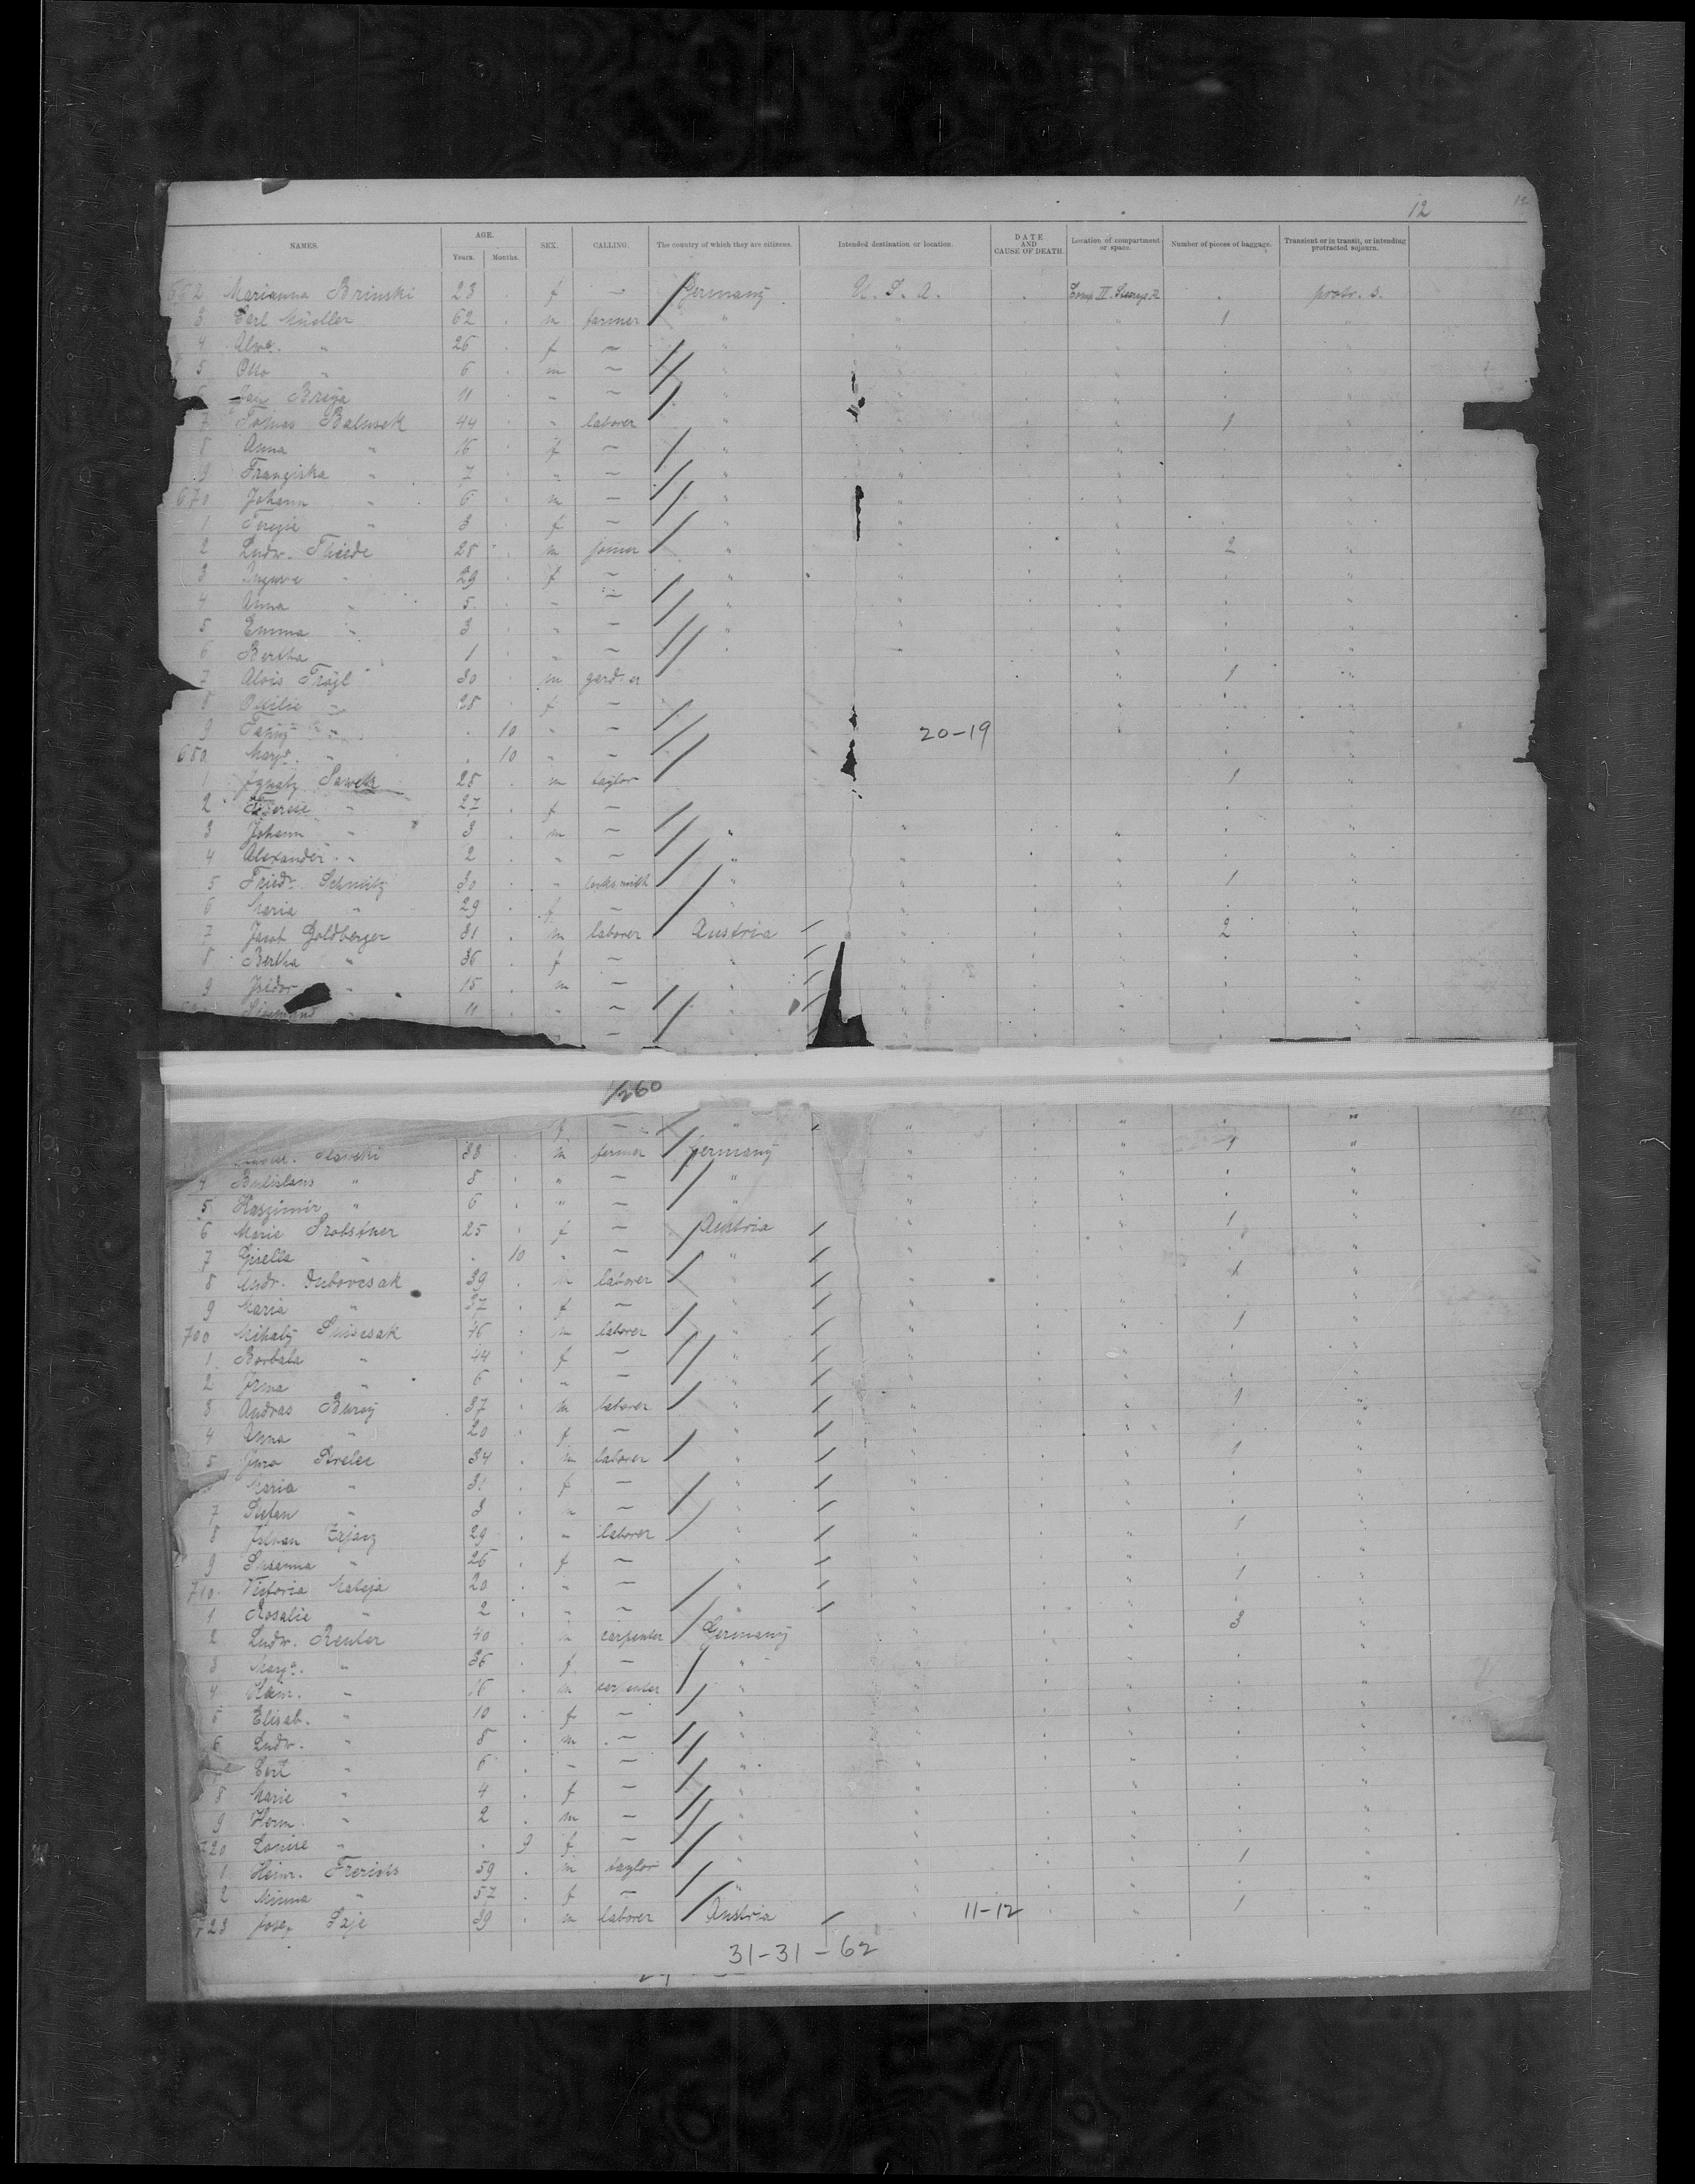 12 12
NAMES. AGE. Years. Months. SEX. CALLING. The country of which they are citizens. Intended destination or location. DATE AND CAUSE OF DEATH. Location of compartment or space. Number of pieces of baggage. Transient or in transit, or intending protracted sojourn.
662 Marianna Brinski 23 f — Germany U. S. A. Comp. IV. Steerage protr. s.
3 Carl Müeller 62 m farmer " " " 1 "
4 Alw. " 26 f — " "
5 Otto " 6 m — " "
Jan Briza 11 " — " "
7 Tomas Balusek 44 " laborer " " 1 "
8 Anna " 16 f — " "
9 Franziska " 7 " — " "
670 Johann " 6 m — " "
1 Terezie " 3 f — " "
2 Ludw. Thiede 28 m joiner " " 2 "
3 29 f — " "
4 Anna " 5 " — " "
5 Emma " 3 " — " "
6 Bertha 1 " —
7 Alois 30 m gard.er 1 "
8 Ottilie " 28 f —
9 " 10 " — 20-19
680 Marg. " 10 " —
1 Ignatz Sawek 28 m taylor 1 "
2 Therese " 27 f —
3 Johann " 3 m — " " "
4 Alexander " 2 " — " " "
5 Friedr. Schmitz 30 " locksmith " " " 1 "
6 Maria " 29 f — " " "
7 Jacob Goldberger 31 m laborer Austria " " 2 "
8 Bertha " 36 f — " " "
9 Isidor " 15 m — " " "
Siegmund " 11 " — " " "
— " " "
1/260
f — " " " "
38 m farmer Germany " " 1 "
4 Bolislaus " 8 " — " " "
5 Kaszimir " 6 " — " " "
6 Marie Probstner 25 f — Austria " " 1 "
7 Gisella " 10 " — " " "
8 Andr. Dubovcsak 39 m laborer " " 1 "
9 Maria " 37 f — " " "
700 Mihaly 46 m laborer " " 1 "
1 Borbala " 44 f — " " "
2 Irma " 6 " — " " "
3 Andras Bury 37 m laborer " " 1 "
4 Anna " 20 f — " " "
5 Jura Strelec 34 m laborer " " 1 "
Maria " 31 f — " " "
7 Stefan " 3 m — " " "
8 Zajacz 29 " laborer " " 1 "
9 Susanna " 26 f — " " "
710 Victoria Mateja 20 " — " " 1 "
1 Rosalie " 2 " — " " "
2 Ludw. Reuter 40 m carpenter Germany " " 3 "
3 Marg. " 36 f — " " "
4 Heinr. " 16 m carpenter " " "
5 Elisab. " 10 f — " " "
6 Ludw. " 8 m — " " "
" 6 " — " " "
8 Marie " 4 f — " " "
9 Herm. " 2 m — " " "
720 Louise " 9 f — " " "
1 Heinr. Frerichs 59 m taylor " " 1 "
2 Minna " 57 f — " " "
723 Josef 39 m laborer Austria " 11-12 " 1 "
31-31-62